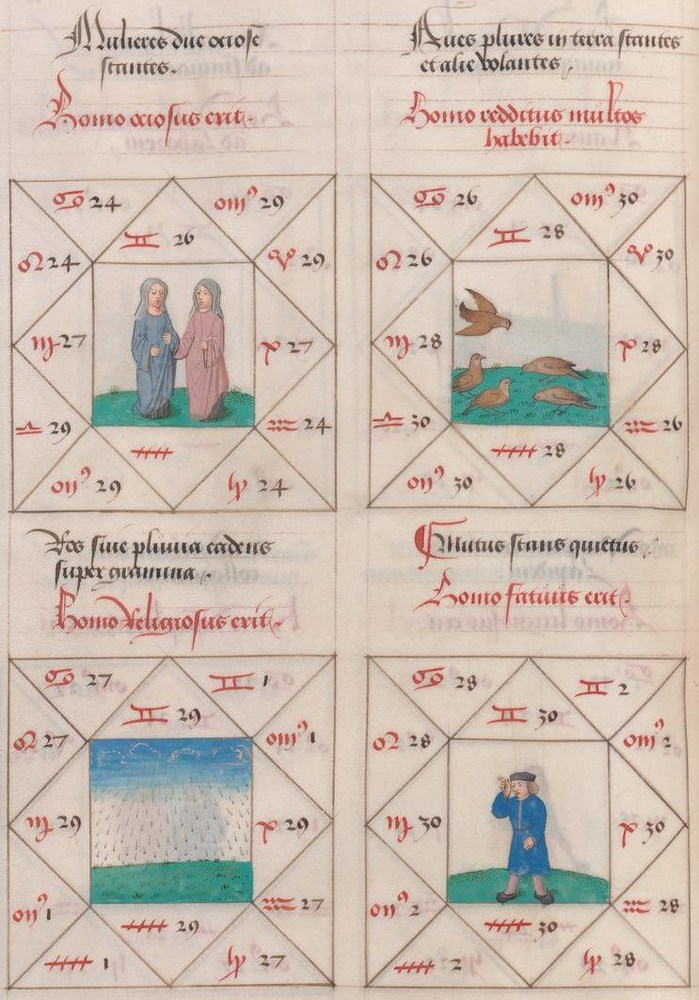 Mulieres due ociose
stantes.
Homo ociosus erit.
♋ 24
♊ 26
29
♌ 24
29
♍ 27
27
♎ 29
♒ 24
29
♑ 24
Aues plures in terra stantes
et alie volantes.
Homo redditus multos
habebit.
♋ 26
♊ 28
30
♌ 26
30
♍ 28
28
♎ 30
♒ 26
30
28
♑ 26
Ros siue pluuia cadens
super gramina.
Homo Religiosus erit.
♋ 27
♊ 29
♊ 1
♌ 27
1
♍ 29
29
1
♒ 27
1
29
♑ 27
Mutus stans quietus
Homo fatuus erit.
♋ 28
♊ 30
♊ 2
♌ 28
2
♍ 30
30
2
♒ 28
2
30
♑ 28